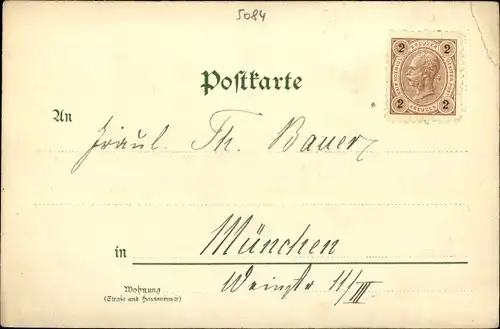 5084
Postkarte
2 KREUZER 2
2 KREUZER 2
An
Fräul. Th. Bauer
in München
Wohnung
(Straße und Hausnummer)
Weinstr 11/III